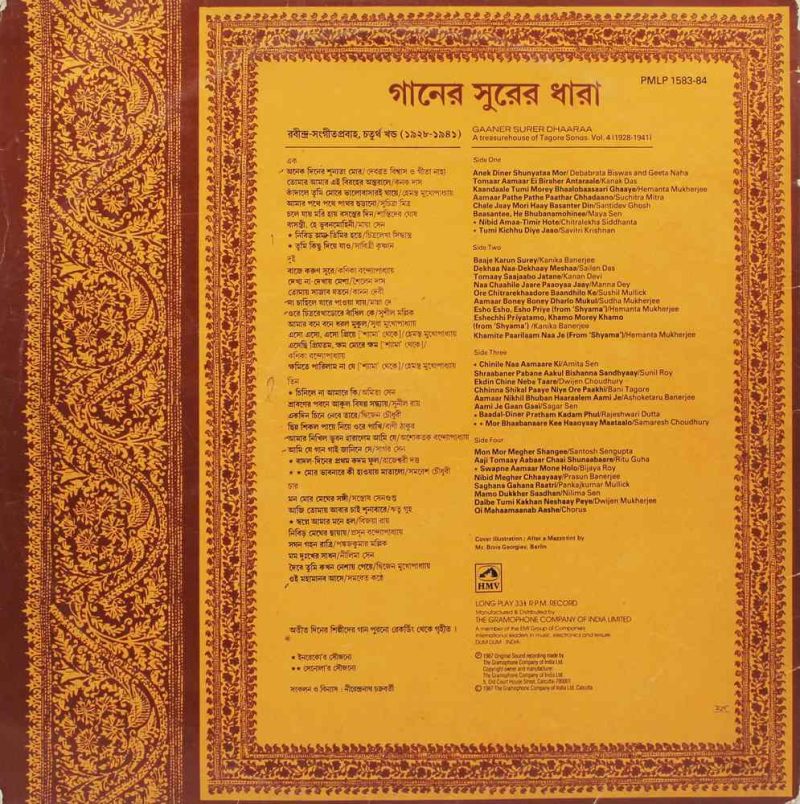 গানের সুরের ধারা
PMLP 1583-84
রবীন্দ্র-সংগীতপ্রবাহ, চতুর্থ খন্ড (১৯২৮-১৯৪১)
এক
অনেক দিনের শূন্যতা মোর/দেবব্রত বিশ্বাস ও গীতা নাহা
তোমার আমার এই বিরহের অন্তরালে/কনক দাস
কাঁদালে তুমি মোরে ভালোবাসারই ঘায়ে/হেমন্ত মুখোপাধ্যায়
আমার পথে পথে পাথর ছড়ানো/সুচিত্রা মিত্র
চলে যায় মরি হায় বসন্তের দিন/শান্তিদেব ঘোষ
বাসন্তী, হে ভুবনমোহিনী/মায়া সেন
★ নিবিড় অমা-তিমির হতে/চিত্রলেখা সিদ্ধান্ত
★ তুমি কিছু দিয়ে যাও/সাবিত্রী কৃষ্ণান
দুই
বাজে করুণ সুরে/কণিকা বন্দ্যোপাধ্যায়
দেখা না-দেখায় মেশা/শৈলেন দাস
তোমায় সাজাব যতনে/কানন দেবী
না চাহিলে যারে পাওয়া যায়/মান্না দে
ওরে চিত্ররেখাডোরে বাঁধিল কে/সুশীল মল্লিক
আমার বনে বনে ধরল মুকুল/সুধা মুখোপাধ্যায়
এসো এসো, এসো প্রিয়ে ['শ্যামা' থেকে]/হেমন্ত মুখোপাধ্যায়
এসেছি প্রিয়তম, ক্ষম মোরে ক্ষম ['শ্যামা' থেকে]/
কণিকা বন্দ্যোপাধ্যায়
ক্ষমিতে পারিলাম না যে ['শ্যামা' থেকে]/হেমন্ত মুখোপাধ্যায়
তিন
★ চিনিলে না আমারে কি/অমিতা সেন
শ্রাবণের পবনে আকুল বিষণ্ণ সন্ধ্যায়/সুনীল রায়
একদিন চিনে নেবে তারে/দ্বিজেন চৌধুরী
ছিন্ন শিকল পায়ে নিয়ে ওরে পাখি/বাণী ঠাকুর
আমার নিখিল ভুবন হারালেম আমি যে/অশোকতরু বন্দ্যোপাধ্যায়
আমি যে গান গাই জানিনে সে/সাগর সেন
★ বাদল-দিনের প্রথম কদম ফুল/রাজেশ্বরী দত্ত
★★ মোর ভাবনারে কী হাওয়ায় মাতালো/সমরেশ চৌধুরী
চার
মন মোর মেঘের সঙ্গী/সন্তোষ সেনগুপ্ত
আজি তোমায় আবার চাই শুনাবারে/ঋতু গুহ
★ স্বপ্নে আমার মনে হল/বিজয়া রায়
নিবিড় মেঘের ছায়ায়/প্রসূন বন্দ্যোপাধ্যায়
সঘন গহন রাত্রি/পঙ্কজকুমার মল্লিক
মম দুঃখের সাধন/নীলিমা সেন
দৈবে তুমি কখন নেশায় পেয়ে/দ্বিজেন মুখোপাধ্যায়
ওই মহামানব আসে/সমবেত কণ্ঠে
অতীত দিনের শিল্পীদের গান পুরনো রেকর্ডিং থেকে গৃহীত।
★ ইনরেকো'র সৌজন্যে
★★ সেনোলা'র সৌজন্যে
সংকলন ও বিন্যাস : নীরেন্দ্রনাথ চক্রবর্তী
GAANER SURER DHAARAA
A treasurehouse of Tagore Songs. Vol. 4 (1928-1941)
Side One
Anek Diner Shunyataa Mor/Debabrata Biswas and Geeta Naha
Tomaar Aamaar Ei Biraher Antaraale/Kanak Das
Kaandaale Tumi Morey Bhaalobaasaari Ghaaye/Hemanta Mukherjee
Aamaar Pathe Pathe Paathar Chhadaano/Suchitra Mitra
Chale Jaay Mori Haay Basanter Din/Santidev Ghosh
Baasantee, He Bhubanamohinee/Maya Sen
★ Nibid Amaa-Timir Hote/Chitralekha Siddhanta
★ Tumi Kichhu Diye Jaao/Savitri Krishnan
Side Two
Baaje Karun Surey/Kanika Banerjee
Dekhaa Naa-Dekhaay Meshaa/Sailen Das
Tomaay Saajaabo Jatane/Kanan Devi
Naa Chaahile Jaare Paaoyaa Jaay/Manna Dey
Ore Chitrarekhaadore Baandhilo Ke/Sushil Mullick
Aamaar Boney Boney Dharlo Mukul/Sudha Mukherjee
Esho Esho, Esho Priye (from 'Shyama')/Hemanta Mukherjee
Eshechhi Priyatamo, Khamo Morey Khamo
(from 'Shyama')/Kanika Banerjee
Khamite Paarilaam Naa Je (From 'Shyama')/Hemanta Mukherjee
Side Three
★ Chinile Naa Aamaare Ki/Amita Sen
Shraabaner Pabane Aakul Bishanna Sandhyaay/Sunil Roy
Ekdin Chine Neba Taare/Dwijen Choudhury
Chhinna Shikal Paaye Niye Ore Paakhi/Bani Tagore
Aamaar Nikhil Bhuban Haaraalem Aami Je/Ashoketaru Banerjee
Aami Je Gaan Gaai/Sagar Sen
★ Baadal-Diner Pratham Kadam Phul/Rajeshwari Dutta
★★ Mor Bhaabanaare Kee Haaoyaay Maataalo/Samaresh Choudhury
Side Four
Mon Mor Megher Shangee/Santosh Sengupta
Aaji Tomaay Aabaar Chaai Shunaabaare/Ritu Guha
★ Swapne Aamaar Mone Holo/Bijaya Roy
Nibid Megher Chhaayaay/Prasun Banerjee
Saghana Gahana Raatri/Pankajkumar Mullick
Mamo Dukkher Saadhan/Nilima Sen
Daibe Tumi Kakhan Neshaay Peye/Dwijen Mukherjee
Oi Mahaamaanab Aashe/Chorus
Cover Illustration : After a Mazontint by
Mr. Boris Georgiev, Berlin
HMV
LONG PLAY 33⅓ R.P.M. RECORD
Manufactured & Distributed by
THE GRAMOPHONE COMPANY OF INDIA LIMITED
A member of the EMI Group of Companies
International leaders in music, electronics and leisure
DUM DUM INDIA
Ⓟ 1987 Original Sound recording made by
The Gramophone Company of India Ltd.
Copyright owner and manufacturer:
The Gramophone Company of India Ltd.
5, Old Court House Street, Calcutta-700001
© 1987 The Gramophone Company of India Ltd. Calcutta